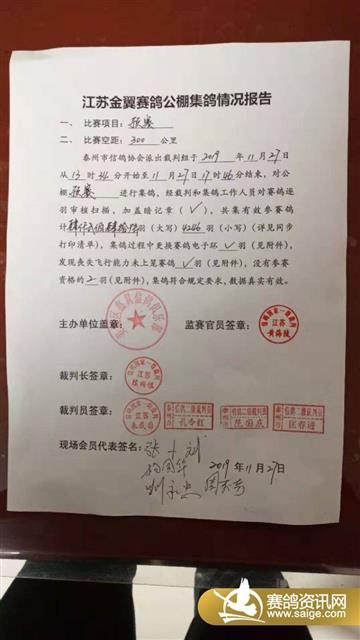 江苏金翼赛鸽公棚集鸽情况报告
一、 比赛项目：预赛
二、 比赛空距：300 公里
泰州市信鸽协会派出裁判组于 2019 年 11 月 27 日
从 13 时 34 分开始至 11 月 27 日 17 时 46 分结束，对公
棚 预赛 进行集鸽，经裁判和集鸽工作人员对赛鸽逐
羽审核扫描，加盖暗记章（✓），共集有效参赛鸽
羽（大写）4246 羽（小写）（详见同步
打印清单），集鸽过程中更换赛鸽电子环 ✓ 羽（见附件），
发现丧失飞行能力未上笼赛鸽 ✓ 羽（见附件），没有参赛
资格的 2 羽（见附件），集鸽符合规定要求，数据真实有效。
主办单位盖章：
监赛官员签章：
江苏
黄海陵
裁判长签章：
江苏
裁判员签章：
江苏
信鸽二级裁判员
孔令红
信鸽二级裁判员
陈国庆
信鸽二级裁判员
现场会员代表签名：
2019 年 11 月 27 日
赛鸽资讯网
www.saige.com